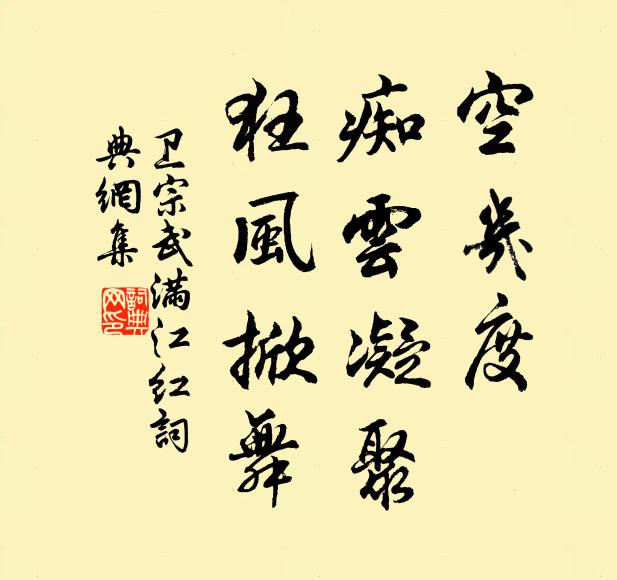 空幾度
痴雲凝聚
狂風掀舞
卫宗武满江红詞
典網集
詞典
网印